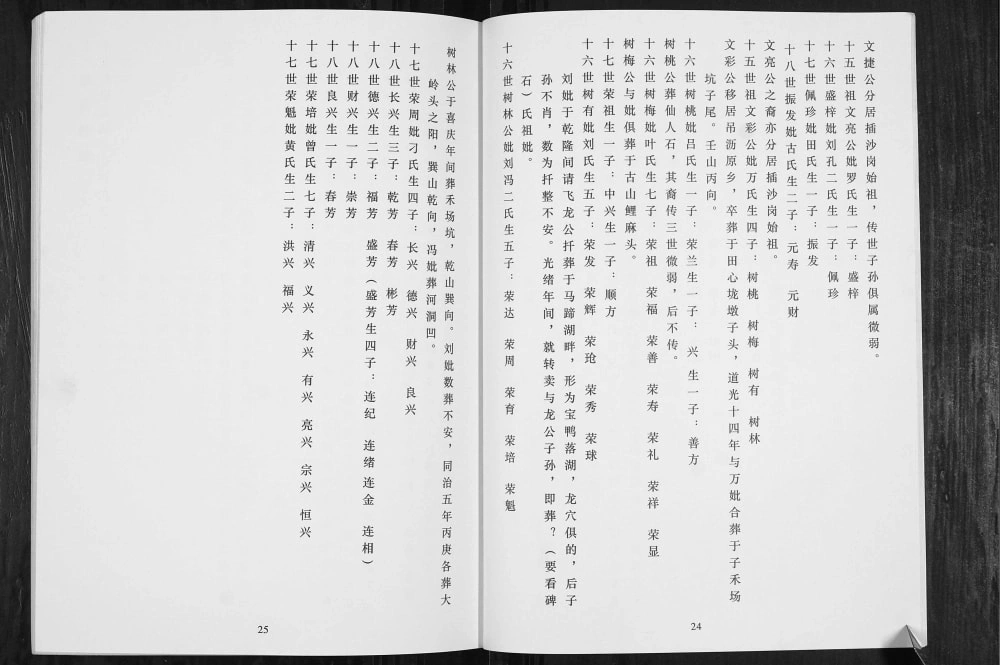 文捷公分居插沙岗始祖，传世子孙俱属微弱。
十五世祖文亮公妣罗氏生一子：盛梓
十六世盛梓妣刘孔二氏生一子：佩珍
十七世佩珍妣田氏生一子：振发
十八世振发妣古氏生二子：元寿 元财
文亮公之裔亦分居插沙岗始祖。
十五世祖文彩公妣万氏生四子：树桃 树梅 树有 树林
文彩公移居吊沥原乡，卒葬于田心垅墩子头，道光十四年与万妣合葬于子禾场
坑子尾。壬山丙向。
十六世树桃妣吕氏生一子：荣兰生一子： 兴生一子：善方
树桃公葬仙人石，其裔传三世微弱，后不传。
十六世树梅妣叶氏生七子：荣祖 荣福 荣善 荣寿 荣礼 荣祥 荣显
树梅公与妣俱葬于古山鲤麻头。
十七世荣祖生一子：中兴生一子：顺方
十六世树有妣刘氏生五子：荣发 荣辉 荣玱 荣秀 荣球
刘妣于乾隆间请飞龙公扦葬于马蹄湖畔，形为宝鸭落湖，龙穴俱的，后子
孙不肖，数为扦整不安。光绪年间，就转卖与龙公子孙，即葬？（要看碑
石）氏祖妣。
十六世树林公妣刘冯二氏生五子：荣达 荣周 荣育 荣培 荣魁
24
树林公于喜庆年间葬禾场坑，乾山巽向。刘妣数葬不安，同治五年丙庚各葬大
岭头之阳，巽山乾向，冯妣葬河洞凹。
十七世荣周妣刁氏生四子：长兴 德兴 财兴 良兴
十八世长兴生三子：乾芳 春芳 彬芳
十八世德兴生二子：福芳 盛芳（盛芳生四子：连纪 连绪 连金 连相）
十八世财兴生一子：崇芳
十八世良兴生一子：春芳
十七世荣培妣曾氏生七子：清兴 义兴 永兴 有兴 亮兴 宗兴 恒兴
十七世荣魁妣黄氏生二子：洪兴 福兴
25